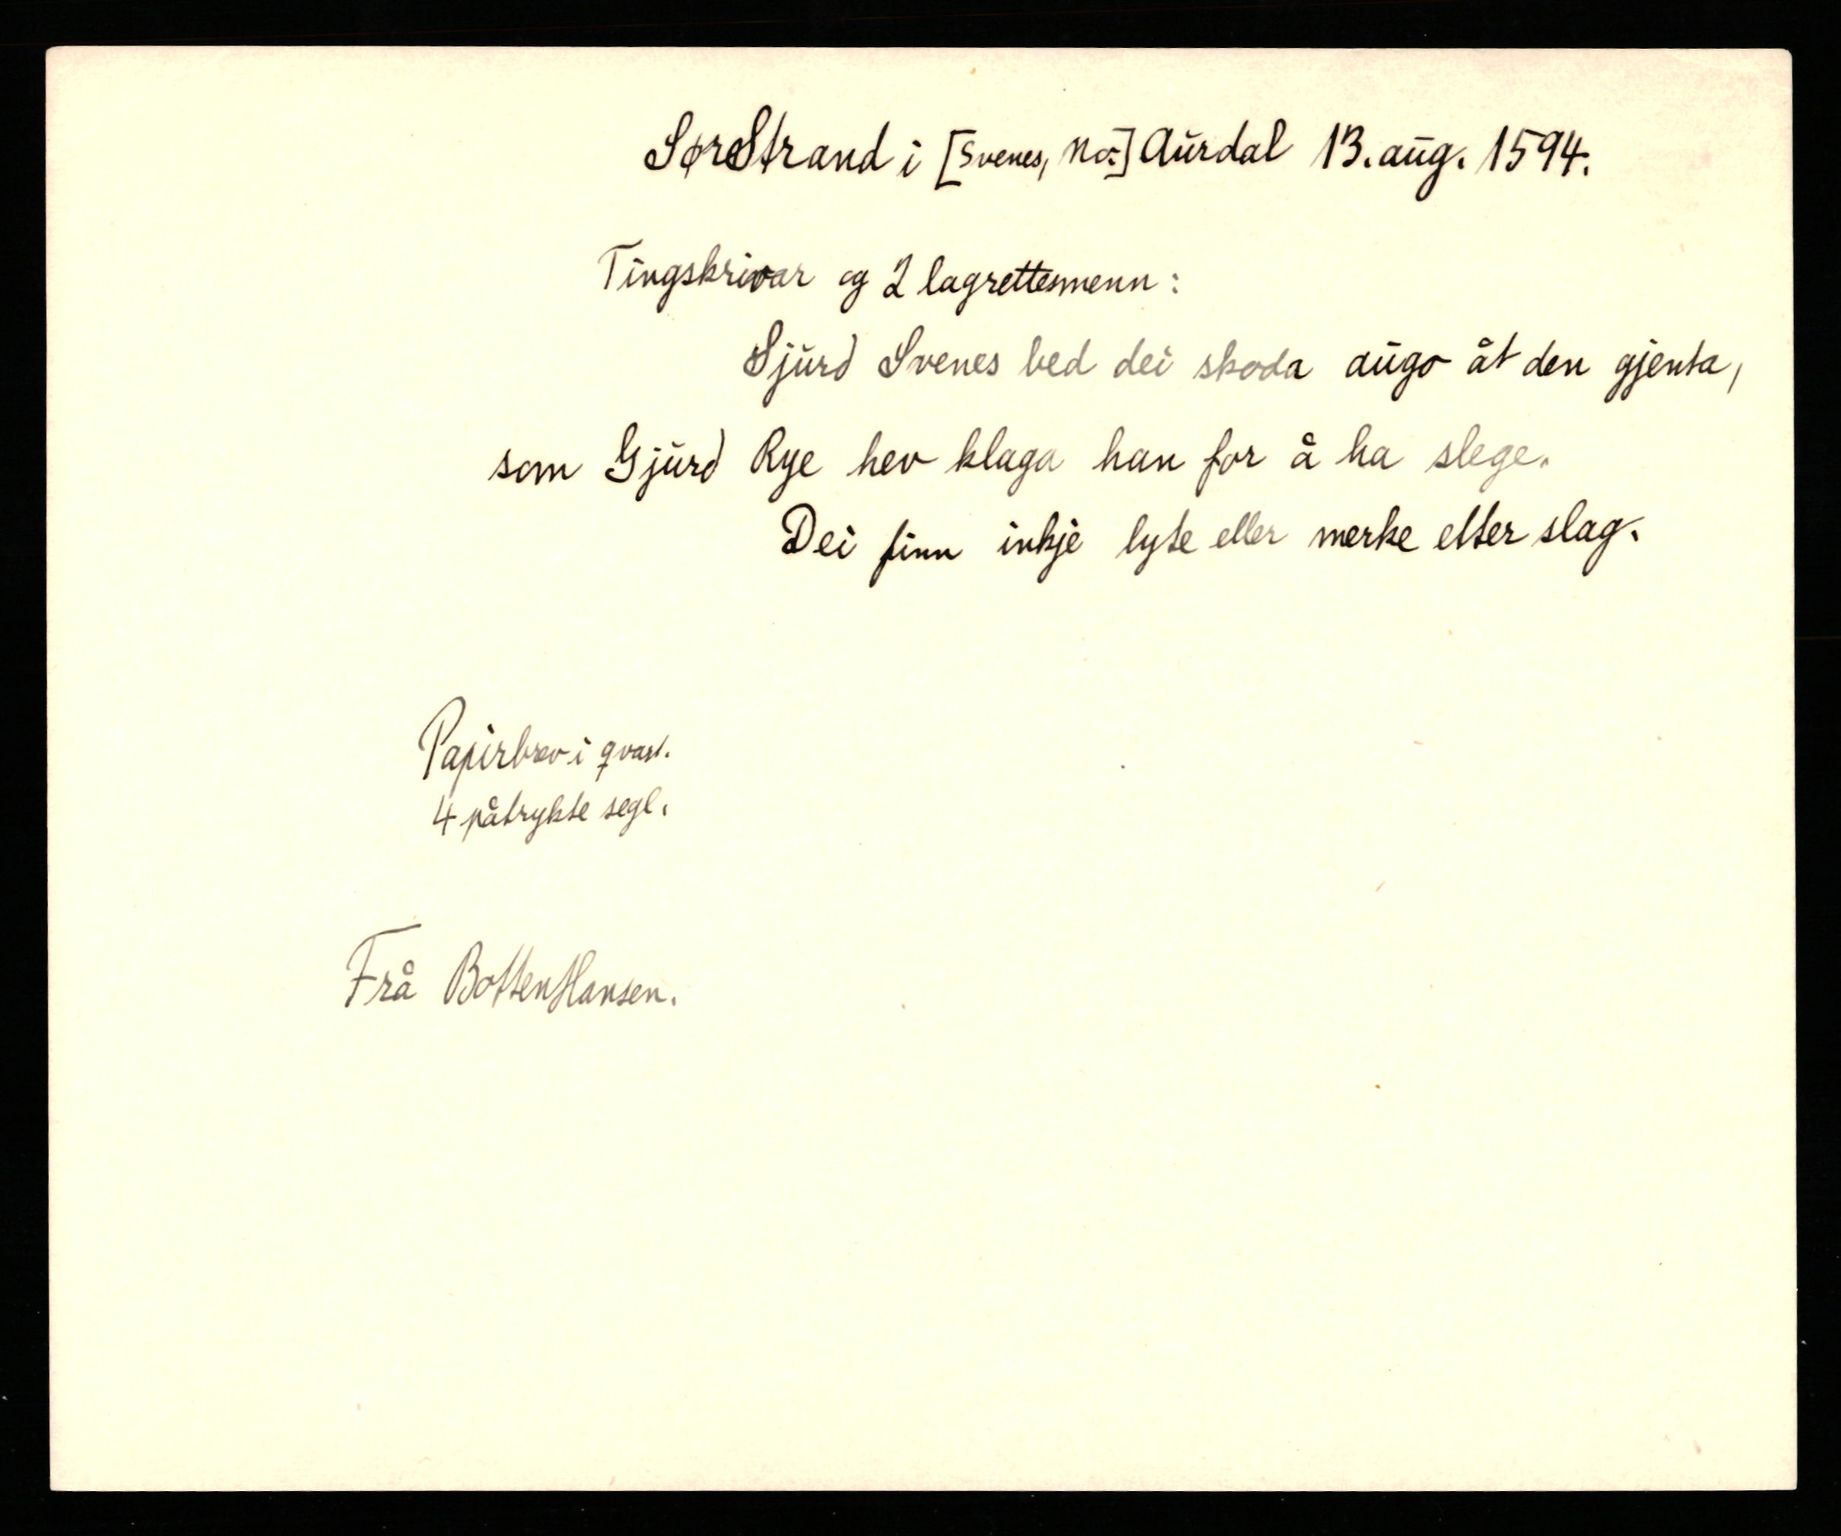 Søre Strand i [Svenes, No.] Aurdal 13. aug. 1594.
Tingskrivar og 2 lagrettesmenn:
Sjurd Svenes bed dei skoda augo åt den gjenta,
som Gjurd Rye hev klaga han for å ha slege.
Dei finn inkje lyte eller merke etter slag.
Papirbrev i qvart.
4 påtrykte segl.
Frå Botten Hansen.